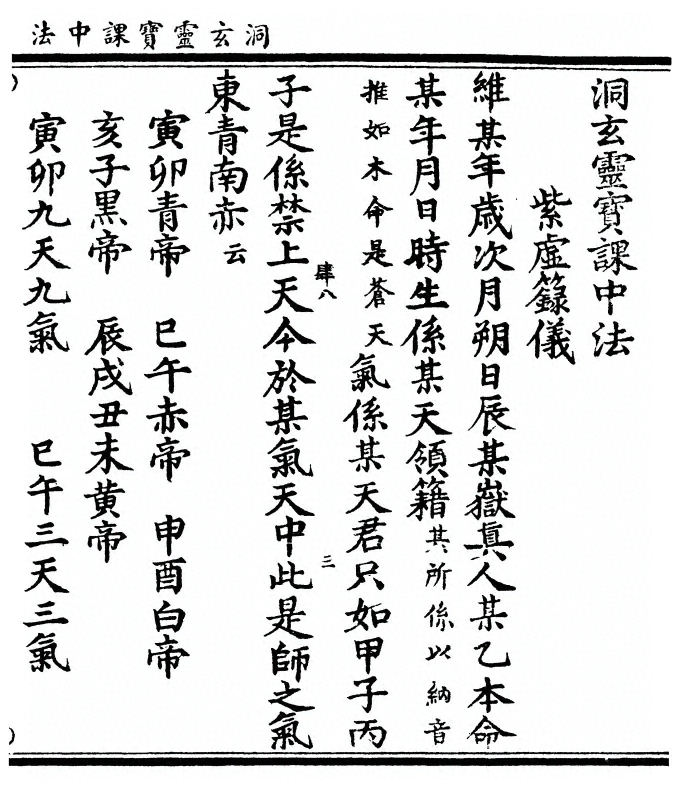 洞玄靈寶課中法
洞玄靈寶課中法
紫虛籙儀
維某年歲次月朔日辰某嶽眞人某乙本命
某年月日時生係某天領籍其所係以納音
推如木命是蒼天氣係某天君只如甲子丙
子是係禁上天今於某氣天中此是師之氣
肆八
三
東青南赤云
寅卯青帝 巳午赤帝 申酉白帝
亥子黑帝 辰戌丑未黄帝
寅卯九天九氣 巳午三天三氣